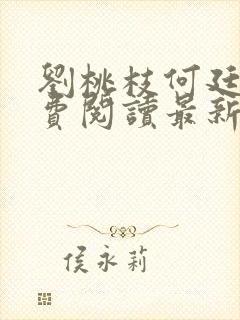 劉桃枝何廷
費閱讀最新
侯永莉